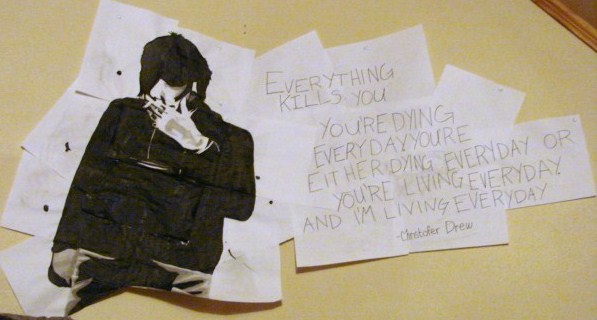 EVERYTHING
KILLS YOU
YOU'RE DYING
EVERYDAY.YOU'RE
EITHER DYING EVERYDAY OR
YOU'RE LIVING EVERYDAY.
AND I'M LIVING EVERYDAY
-Christofer Drew